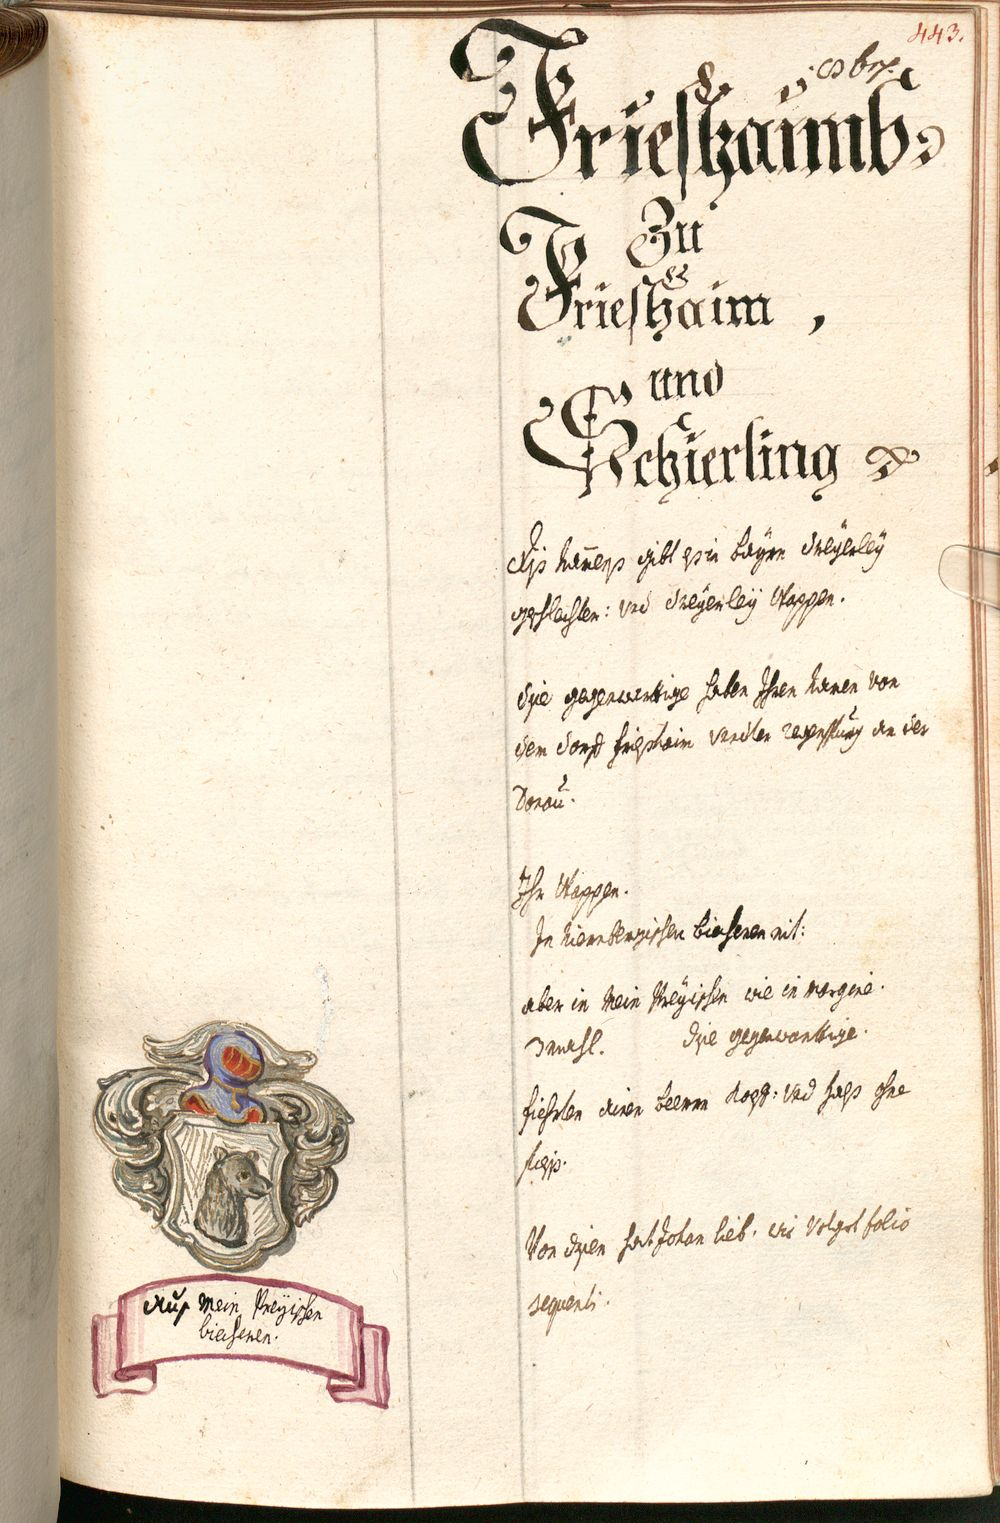 443.
Frieshaimb
Zu
Frieshaim,
und
Schierling
Dis Namens gibt es in Bayrn dreyerley
geschlechter: und dreyerley Wappen.
dise gegenwerttige haben Ihren Namen von
dem dorff frieshaim undter Regenspurg an der
Donau.
Ihr Wappen.
In Niernbergischen Biechern nit:
aber in Mein Preyischen wie in margine.
gemahl. dise gegenwerttige.
fiehrten einen Beern kopff: und halss ohne
fiess.
Von disen hat Johan lieb. wie volgt folio
sequenti.
Auss Mein Preyischen
biechern.